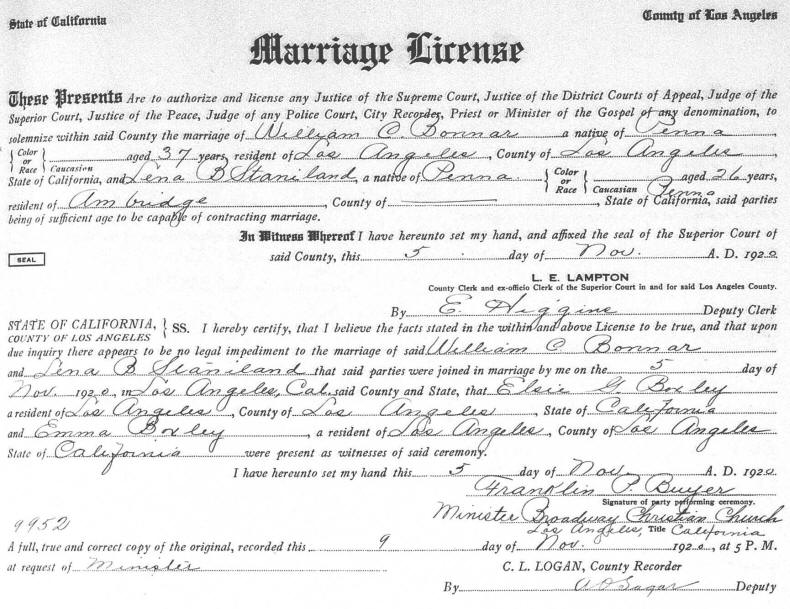 State of California
County of Los Angeles
Marriage License
These Presents Are to authorize and license any Justice of the Supreme Court, Justice of the District Courts of Appeal, Judge of the
Superior Court, Justice of the Peace, Judge of any Police Court, City Recorder, Priest or Minister of the Gospel of any denomination, to
solemnize within said County the marriage of William C. Bonnar a native of Penna
{Color or Race} Caucasian aged 37 years, resident of Los Angeles, County of Los Angeles,
State of California, and Lena B Staniland, a native of Penna. {Color or Race} Caucasian aged 26 years,
resident of Ambridge, County of , Penna State of California, said parties
being of sufficient age to be capable of contracting marriage.
In Witness Whereof I have hereunto set my hand, and affixed the seal of the Superior Court of
SEAL
said County, this 5 day of Nov. A. D. 1920
L. E. LAMPTON
County Clerk and ex-officio Clerk of the Superior Court in and for said Los Angeles County.
By E. Higgins Deputy Clerk
STATE OF CALIFORNIA, COUNTY OF LOS ANGELES } SS. I hereby certify, that I believe the facts stated in the within and above License to be true, and that upon
due inquiry there appears to be no legal impediment to the marriage of said William C Bonnar
and Lena B Staniland that said parties were joined in marriage by me on the 5 day of
Nov. 1920, in Los Angeles, Cal. said County and State, that Elsie G Boxley
a resident of Los Angeles, County of Los Angeles, State of California
and Emma Boxley, a resident of Los Angeles, County of Los Angeles
State of California were present as witnesses of said ceremony.
I have hereunto set my hand this 5 day of Nov A. D. 1920
Franklin P.
Signature of party performing ceremony.
Minister Broadway Christian Church
Los Angeles, Title California
9952
A full, true and correct copy of the original, recorded this 9 day of Nov. 1920, at 5 P. M.
at request of Minister
C. L. LOGAN, County Recorder
By Deputy